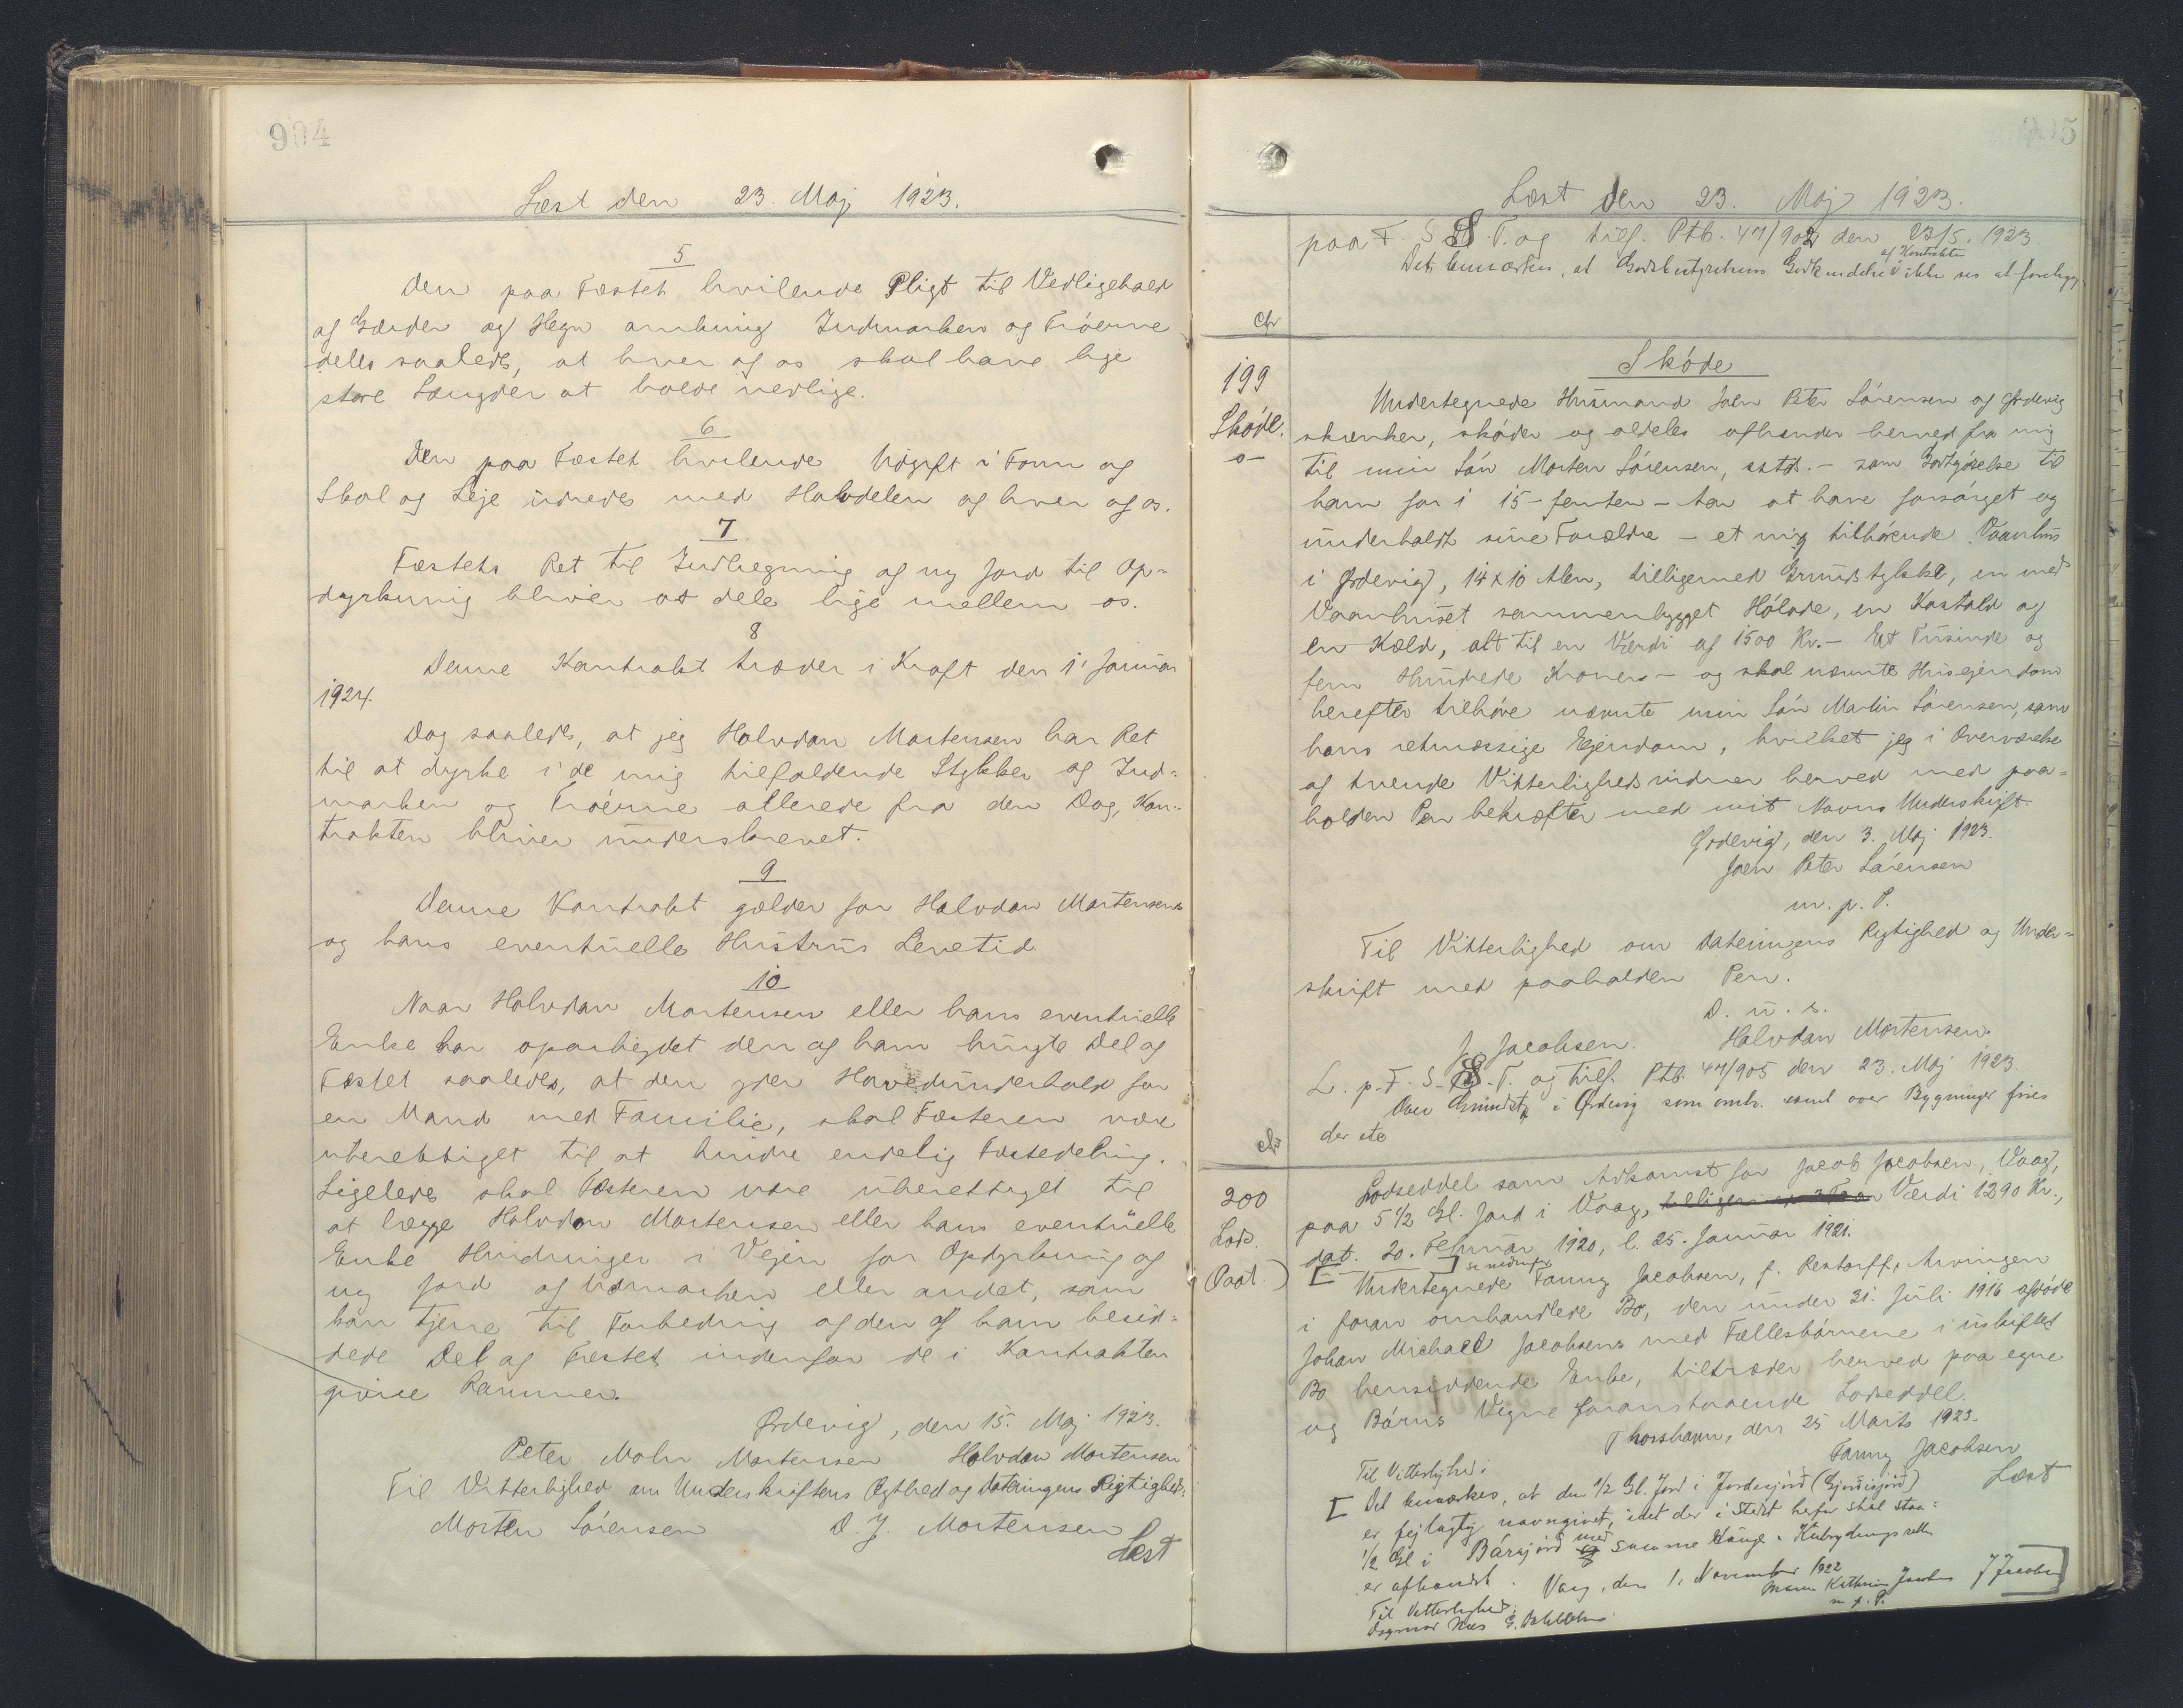 904
Læst den 23. Maj 1923.
5
Den paa Fæstet hvilende Pligt til Vedligehold
af Gærder og Hegn omkring Indmarken og Trøerne
deles saaledes, at hver af os skal have lige
store Længder at holde vedlige.
6
Den paa Fæstet hvilende Udgift i Form af
Skat og Leje udredes med Halvdelen af hver af os.
7
Fæstets Ret til Indhegning af ny Jord til Op=
dyrkning bliver at dele lige mellem os.
8
Denne Kontrakt træder i Kraft den 1' Januar
1924.
Dog saaledes, at jeg Halvdan Mortensen har Ret
til at dyrke i de mig tilfaldende Stykker af Ind=
marken og Trøerne allerede fra den Dag, Kon=
trakten bliver underskrevet.
9
Denne Kontrakt gælder for Halvdan Mortensens
og hans eventuelle Hustrus Levetid
10
Naar Halvdan Mortensen eller hans eventuelle
Enke har oparbejdet den af ham brugte Del af
Fæstet saaledes, at den giver Hovedunderhold for
en Mand med Familie, skal Fæsteren være
uberettiget til at hindre endelig Fæstedeling.
Ligeledes skal Fæsteren være uberettiget til
at lægge Halvdan Mortensen eller hans eventuelle
Enke Hindringer i Vejen for Opdyrkning af
ny Jord af Udmarken eller andet, som
kan tjene til Forbedring af den af ham besid=
dede Del af Fæstet indenfor de i Kontrakten
givne Rammer.
Ørdevig, den 15. Maj 1923.
Peter Mohr Mortensen Halvdan Mortensen
Til Vitterlighed om Underskriftens Ægthed og Dateringens Rigtighed:
Morten Sørensen D. J. Mortensen
Læst
Læst den 23. Maj 1923.
paa F. S. S. T. og tilf. Ptb. 47/902 den 23/5. 1923.
af Kontrakten
Det bemærkes, at Godsbestyrelsens Godkendelse ikke ses at foreligge.
Skøde
199
Skøde.
Undertegnede Husmand Joen Peter Sørensen af Ørdevig
skænker, skøder og aldeles afhænder herved fra mig
til min Søn Morten Sørensen, sstds. – som Godtgørelse til
ham for i 15 – femten – Aar at have forsørget og
underholdt sine Forældre – et mig tilhørende Vaanhus
i Ørdevig, 14 x 10 Alen, tilligemed Grundstykke, en med
Vaanhuset sammenbygget Hølade, en Kostald og
en Kæld, alt til en Værdi af 1500 Kr. – Et Tusinde og
fem Hundrede Kroner – og skal nævnte Husejendom
herefter tilhøre nævnte min Søn Martin Sørensen, som
hans retmæssige Ejendom, hvilket jeg i Overværelse
af tvende Vitterlighedsvidner herved med paa=
holden Pen bekræfter med mit Navns Underskrift.
Ørdevig, den 3. Maj 1923.
Joen Peter Sørensen
m. p. P.
Til Vitterlighed om Dateringens Rigtighed og Under=
skrift med paaholden Pen.
D. u. s.
J. Jacobsen. Halvdan Mortensen.
L. p. F. S. S. T. og tilf. Ptb. 47/905 den 23. Maj 1923.
Over Grundst i Ørdevig som omh. samt over Bygninger
der
200
Lods.
Paat.
Lodseddel som Adkomst for Jacob Jacobsen, Vaag,
paa 5 1/2 Gl. Jord i Vaag, Værdi 1290 Kr.,
dat. 20. Februar 1920, l. 25. Januar 1921.
se nedenfor
Undertegnede Fanny Jacobsen, f. Restorff, Arvingen
i foran omhandlede Bo, den under 31. Juli 1916 afdøde
Johan Michael Jacobsens med Fællesbørnene i uskiftet
Bo hensiddende Enke, tiltræder herved paa egne
og Børns Vegne foranstaaende Lodseddel.
Thorshavn, den 25 Marts 1923.
Fanny Jacobsen
Til Vitterlighed: Læst
[ Det bemærkes, at den 1/2 Gl. Jord i
er fejlagtig navngivet, idet der i Stedet herfor skal staa:
1/2 Gl i med samme
er afhændt. Vaag, den 1. November 1922
Jacobsen J Jacobsen ]
m. p. P.
Til Vitterlighed: